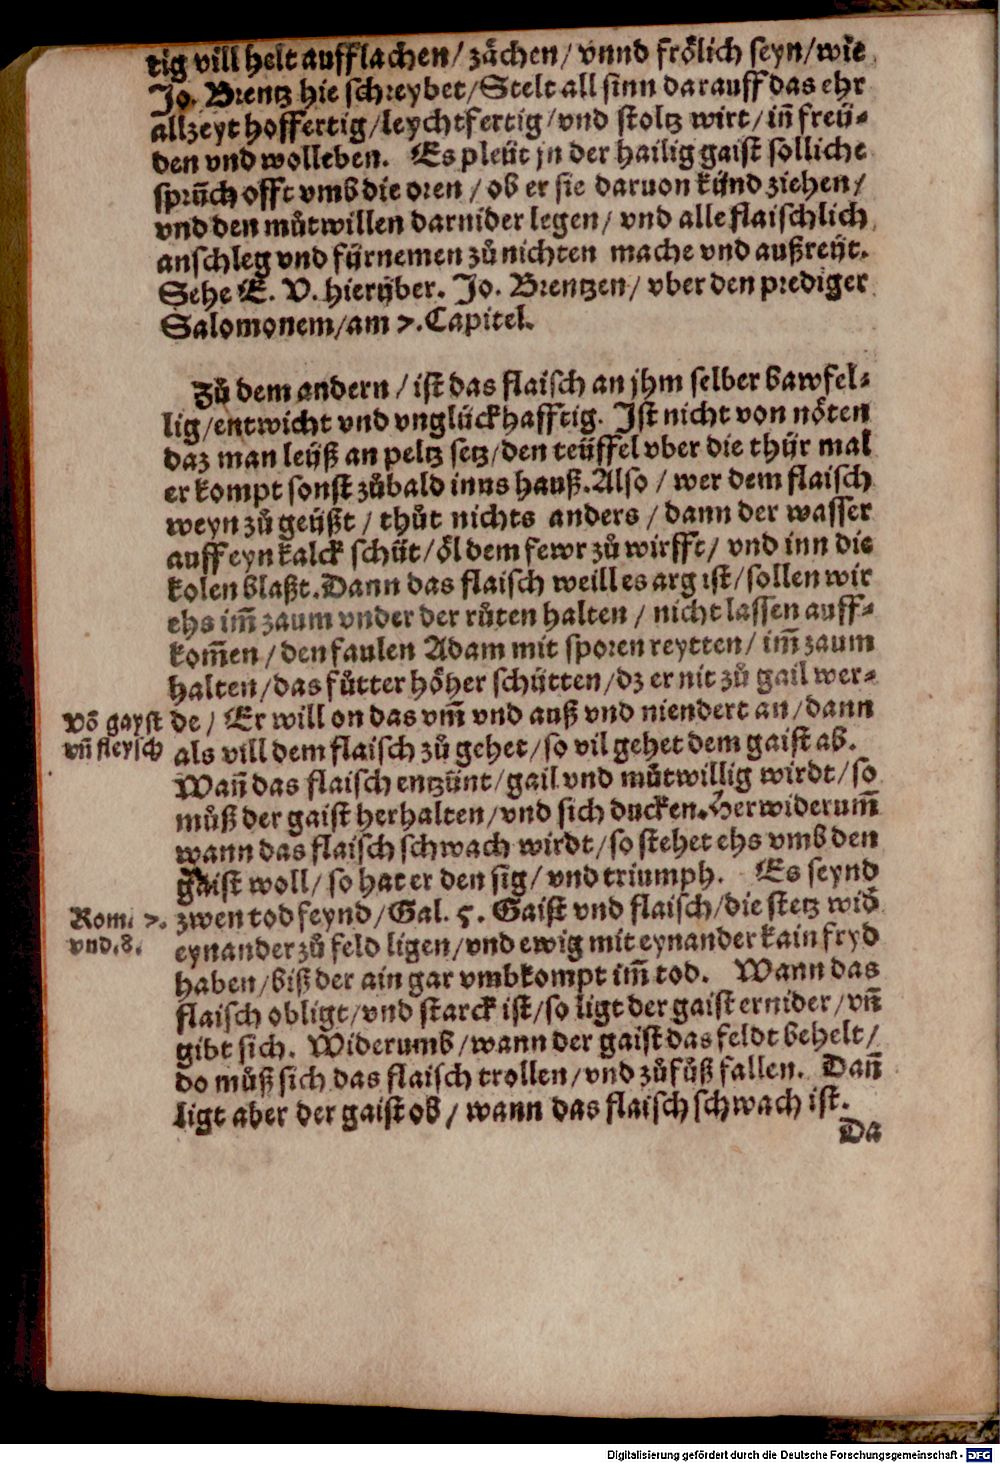 tig vill helt aufflachen/ zächen/ vnnd frölich seyn/wie
Jo. Brentz hie schreybet/Stelt all sinn darauff das ehr
allzeyt hoffertig/leychtfertig/vnd stoltz wirt/iñ freü-
den vnd wolleben. Es pleüt jn der hailig gaist solliche
sprüch offt vmb die oren/ ob er sie daruon künd ziehen/
vnd den můtwillen darnider legen/ vnd alle flaischlich
anschleg vnd fürnemen zů nichten mache vnd außreüt.
Sehe E. V. hierüber. Jo. Brentzen/ vber den prediger
Salomonem/am 7. Capitel.
Zů dem andern/ ist das flaisch an jhm selber bawfel-
lig/entwicht vnd vnglückhafftig. Ist nicht von nöten
daz man leüß an peltz setz/den teüffel vber die thür mal
er kompt sonst zůbald inns hauß. Also/ wer dem flaisch
weyn zů geüßt/ thůt nichts anders/ dann der wasser
auff eyn kalck schüt/öl dem fewr zů wirfft/ vnd inn die
kolen blaßt. Dann das flaisch weill es arg ist/sollen wir
ehs im̃ zaum vnder der růten halten/ nicht lassen auff-
kom̃en/den faulen Adam mit sporen reytten/ im̃ zaum
halten/das fůtter höher schütten/dz er nit zů gail wer-
Võ gayst de/ Er will on das vm̃ vnd auß vnd niendert an/dann
vñ fleysch als vill dem flaisch zů gehet/so vil gehet dem gaist ab.
Wañ das flaisch entzünt/gail vnd můtwillig wirdt/so
můß der gaist herhalten/vnd sich ducken. Herwiderum̃
wann das flaisch schwach wirdt/so stehet ehs vmb den
gaist woll/ so hat er den sig/ vnd triumph. Es seynd
Rom. 7. zwen todfeynd/Gal. 5. Gaist vnd flaisch/die stetz wid̃
vnd. 8. eynander zů feld ligen/vnd ewig mit eynander kain fryd
haben/biß der ain gar vmbkompt im̃ tod. Wann das
flaisch obligt/vnd starck ist/so ligt der gaist ernider/vñ
gibt sich. Widerumb/wann der gaist das feldt behelt/
do můß sich das flaisch trollen/vnd zůfůß fallen. Dañ
ligt aber der gaist ob/ wann das flaisch schwach ist.
Da
Digitalisierung gefördert durch die Deutsche Forschungsgemeinschaft - DFG